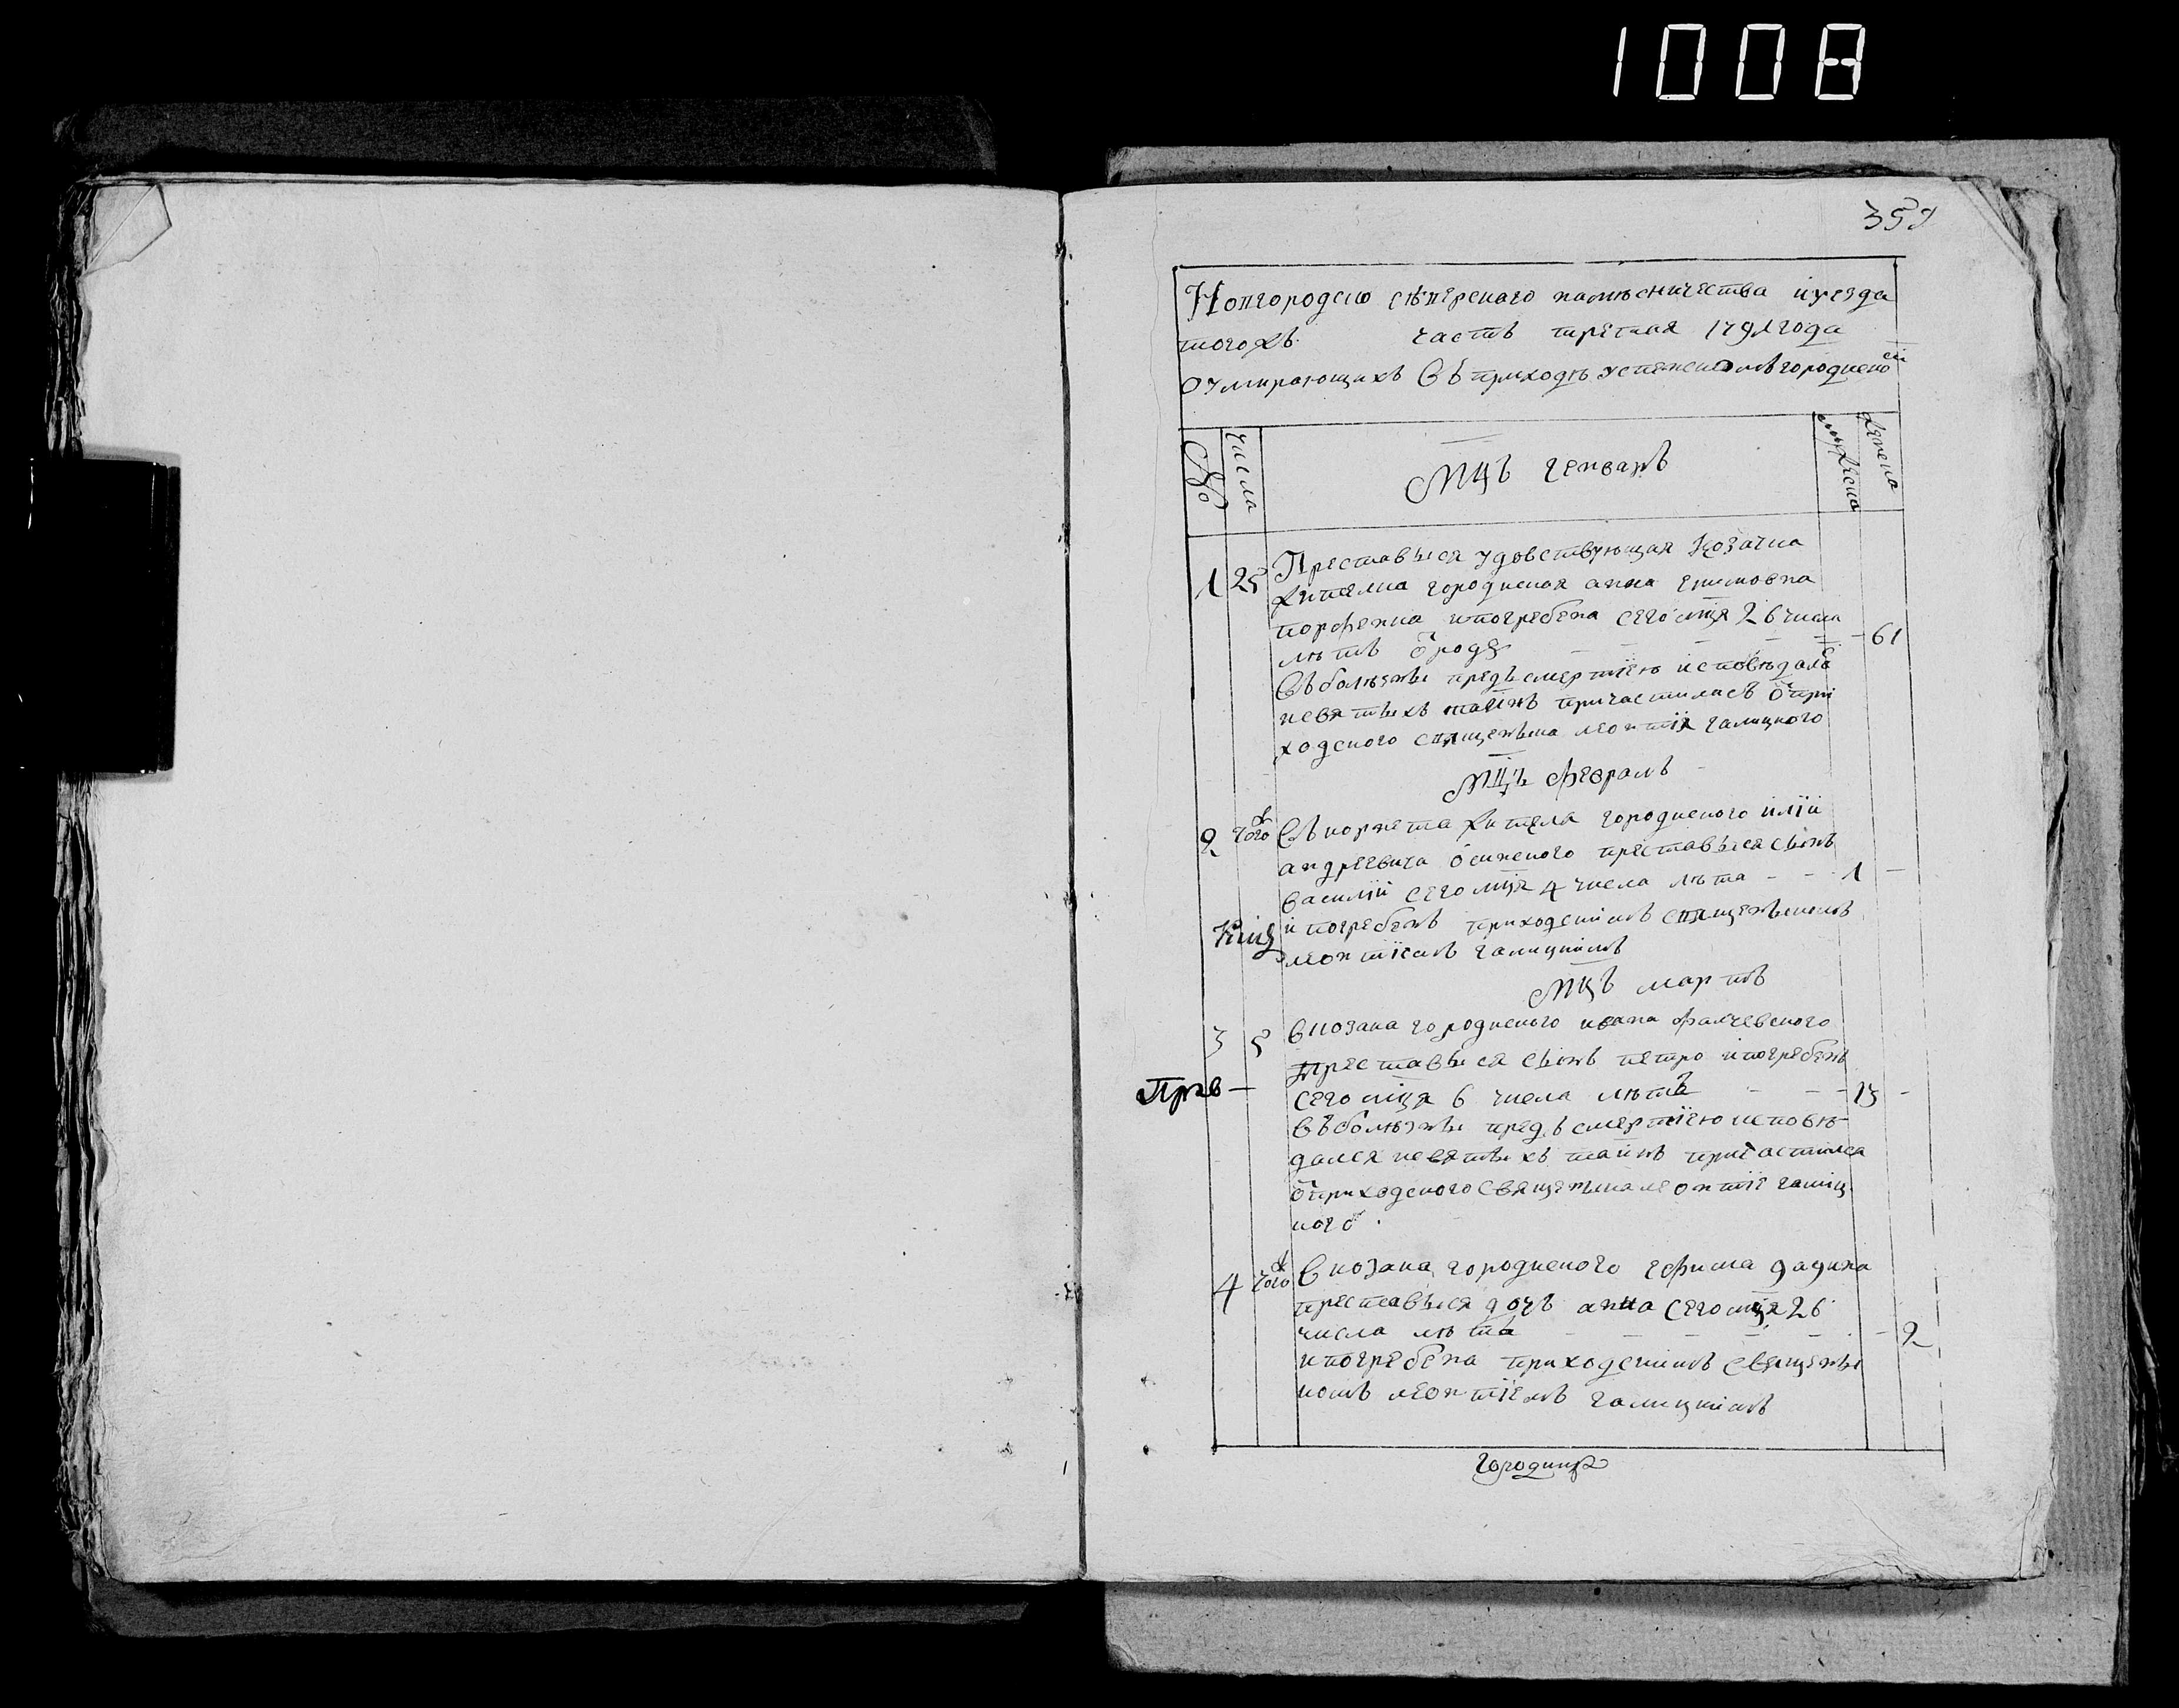 1008
359
Новгородско сѣверского намѣсничества и уезда
тогожъ часть третая 1791 года
о умирающихъ въ приходѣ успенскомъ городиско
№
числа
МЦЪ генварь
мужеска
женска
1 25 Преставися удовствующая козачка
жителка городиская анна
и погребена сего мця 26 числа
лѣтъ ѿроду - - - 61
Въ болѣзни предъ смертїею исповѣдала
и святыхъ тайнъ причастилась ѿ при
ходского священика леонтїя галицкого
МЦЪ февраль
2 того ж Въ корнета жителя городиского илїи
андреевича осинского преставися сынъ
василїй сего мця 4 числа лѣта - - 1 -
и погребенъ приходскимъ священикомъ
леонтїемъ галицкимъ
МЦЪ мартъ
3 5 В козака городиского ивана фалчевского
преставися сынъ петро и погребенъ
Прав -
сего мця 6 числа лѣтъ - - - 13 -
Въ болѣзни предъ смертїею исповѣ-
дался и святыхъ тайнъ причастился
ѿ приходского священика леонтїе галиц
кого.
4 того ж В козака городиского ефима
преставися дочъ анна сего мця 26
числа лѣта - - - - - - 2
и погребена приходскимъ священи
комъ леонтїемъ галицкимъ